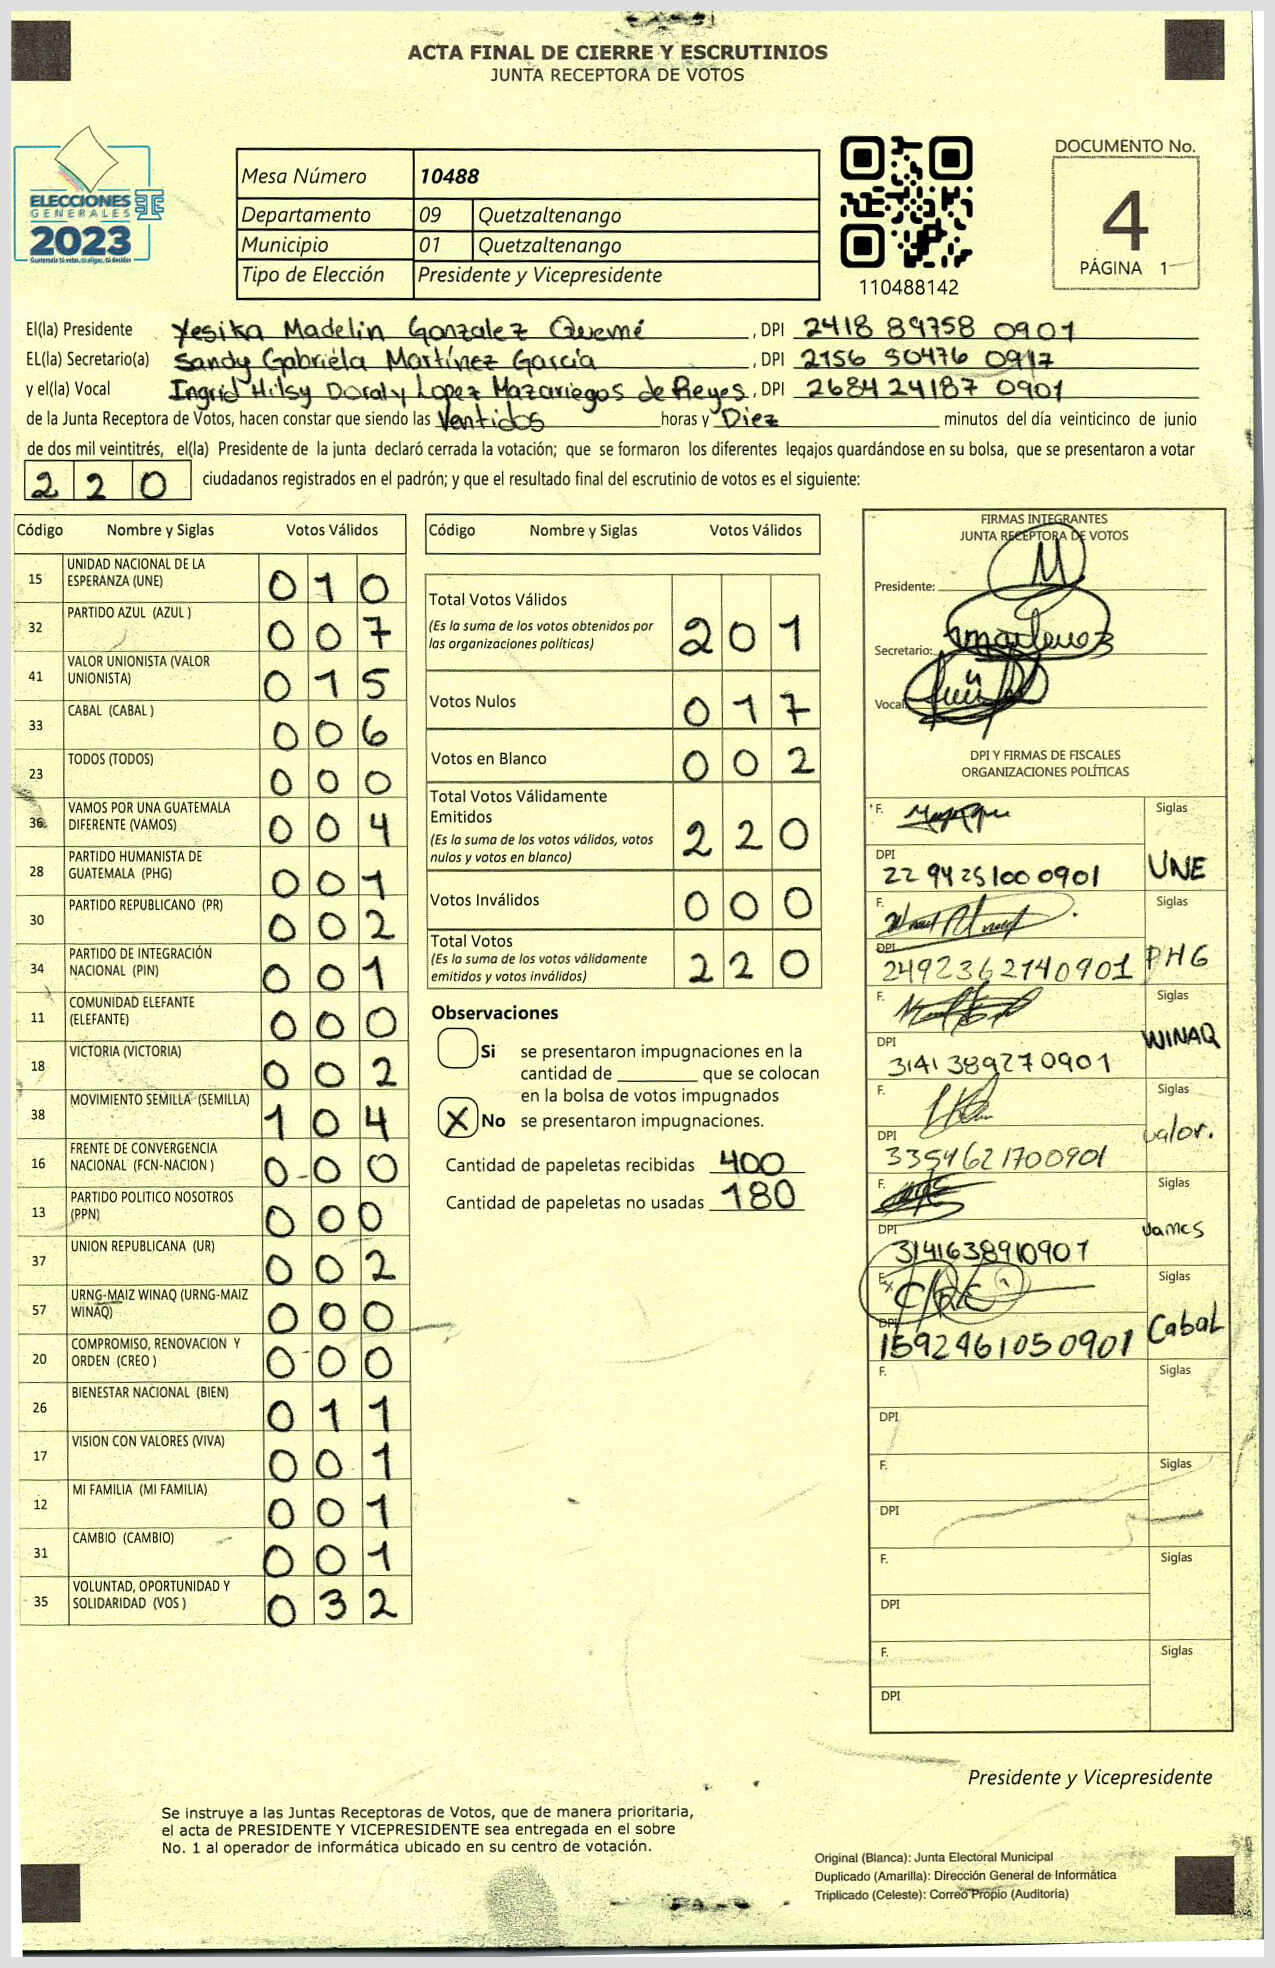 ACTA FINAL DE CIERRE Y ESCRUTINIOS
JUNTA RECEPTORA DE VOTOS
ELECCIONES
GENERALES
2023
Guatemala tú votas, tú eliges, tú decides
Mesa Número 10488
Departamento 09 Quetzaltenango
Municipio 01 Quetzaltenango
Tipo de Elección Presidente y Vicepresidente
110488142
DOCUMENTO No.
4
PÁGINA 1
El(la) Presidente Yesika Madelin Gonzalez Quemé, DPI 2418 89758 0901
EL(la) Secretario(a) Sandy Gabriela Martínez García, DPI 2156 50476 0917
y el(la) Vocal Ingrid Hilsy Doraly Lopez Mazariegos de Reyes, DPI 2684 24187 0901
de la Junta Receptora de Votos, hacen constar que siendo las Ventidos horas y Diez minutos del día veinticinco de junio
de dos mil veintitrés, el(la) Presidente de la junta declaró cerrada la votación; que se formaron los diferentes legajos guardándose en su bolsa, que se presentaron a votar
220 ciudadanos registrados en el padrón; y que el resultado final del escrutinio de votos es el siguiente:
Código Nombre y Siglas Votos Válidos
15 UNIDAD NACIONAL DE LA ESPERANZA (UNE) 010
32 PARTIDO AZUL (AZUL ) 007
41 VALOR UNIONISTA (VALOR UNIONISTA) 015
33 CABAL (CABAL ) 006
23 TODOS (TODOS) 000
36 VAMOS POR UNA GUATEMALA DIFERENTE (VAMOS) 004
28 PARTIDO HUMANISTA DE GUATEMALA (PHG) 001
30 PARTIDO REPUBLICANO (PR) 002
34 PARTIDO DE INTEGRACIÓN NACIONAL (PIN) 001
11 COMUNIDAD ELEFANTE (ELEFANTE) 000
18 VICTORIA (VICTORIA) 002
38 MOVIMIENTO SEMILLA (SEMILLA) 104
16 FRENTE DE CONVERGENCIA NACIONAL (FCN-NACION ) 0-00
13 PARTIDO POLITICO NOSOTROS (PPN) 000
37 UNION REPUBLICANA (UR) 002
57 URNG-MAIZ WINAQ (URNG-MAIZ WINAQ) 000
20 COMPROMISO, RENOVACION Y ORDEN (CREO ) 000
26 BIENESTAR NACIONAL (BIEN) 011
17 VISION CON VALORES (VIVA) 001
12 MI FAMILIA (MI FAMILIA) 001
31 CAMBIO (CAMBIO) 001
35 VOLUNTAD, OPORTUNIDAD Y SOLIDARIDAD (VOS ) 032
Código Nombre y Siglas Votos Válidos
Total Votos Válidos 201
(Es la suma de los votos obtenidos por
las organizaciones políticas)
Votos Nulos 017
Votos en Blanco 002
Total Votos Válidamente
Emitidos 220
(Es la suma de los votos válidos, votos
nulos y votos en blanco)
Votos Inválidos 000
Total Votos 220
(Es la suma de los votos válidamente
emitidos y votos inválidos)
Observaciones
Si se presentaron impugnaciones en la
cantidad de ________ que se colocan
en la bolsa de votos impugnados
X No se presentaron impugnaciones.
Cantidad de papeletas recibidas 400
Cantidad de papeletas no usadas 180
FIRMAS INTEGRANTES
JUNTA RECEPTORA DE VOTOS
Presidente:
Secretario:
Vocal
DPI Y FIRMAS DE FISCALES
ORGANIZACIONES POLÍTICAS
F. Siglas
DPI 22 94 251000901 UNE
F. Siglas
DPI 2492362740901 PHG
F. Siglas
DPI 3141389270901 WINAQ
F. Siglas
DPI 3354621700901 valor.
F. Siglas
DPI 3141638910901 vamos
F. Siglas
DPI 1592461050901 Cabal
F. Siglas
DPI
F. Siglas
DPI
F. Siglas
DPI
F. Siglas
DPI
Presidente y Vicepresidente
Se instruye a las Juntas Receptoras de Votos, que de manera prioritaria,
el acta de PRESIDENTE Y VICEPRESIDENTE sea entregada en el sobre
No. 1 al operador de informática ubicado en su centro de votación.
Original (Blanca): Junta Electoral Municipal
Duplicado (Amarilla): Dirección General de Informática
Triplicado (Celeste): Correo Propio (Auditoría)